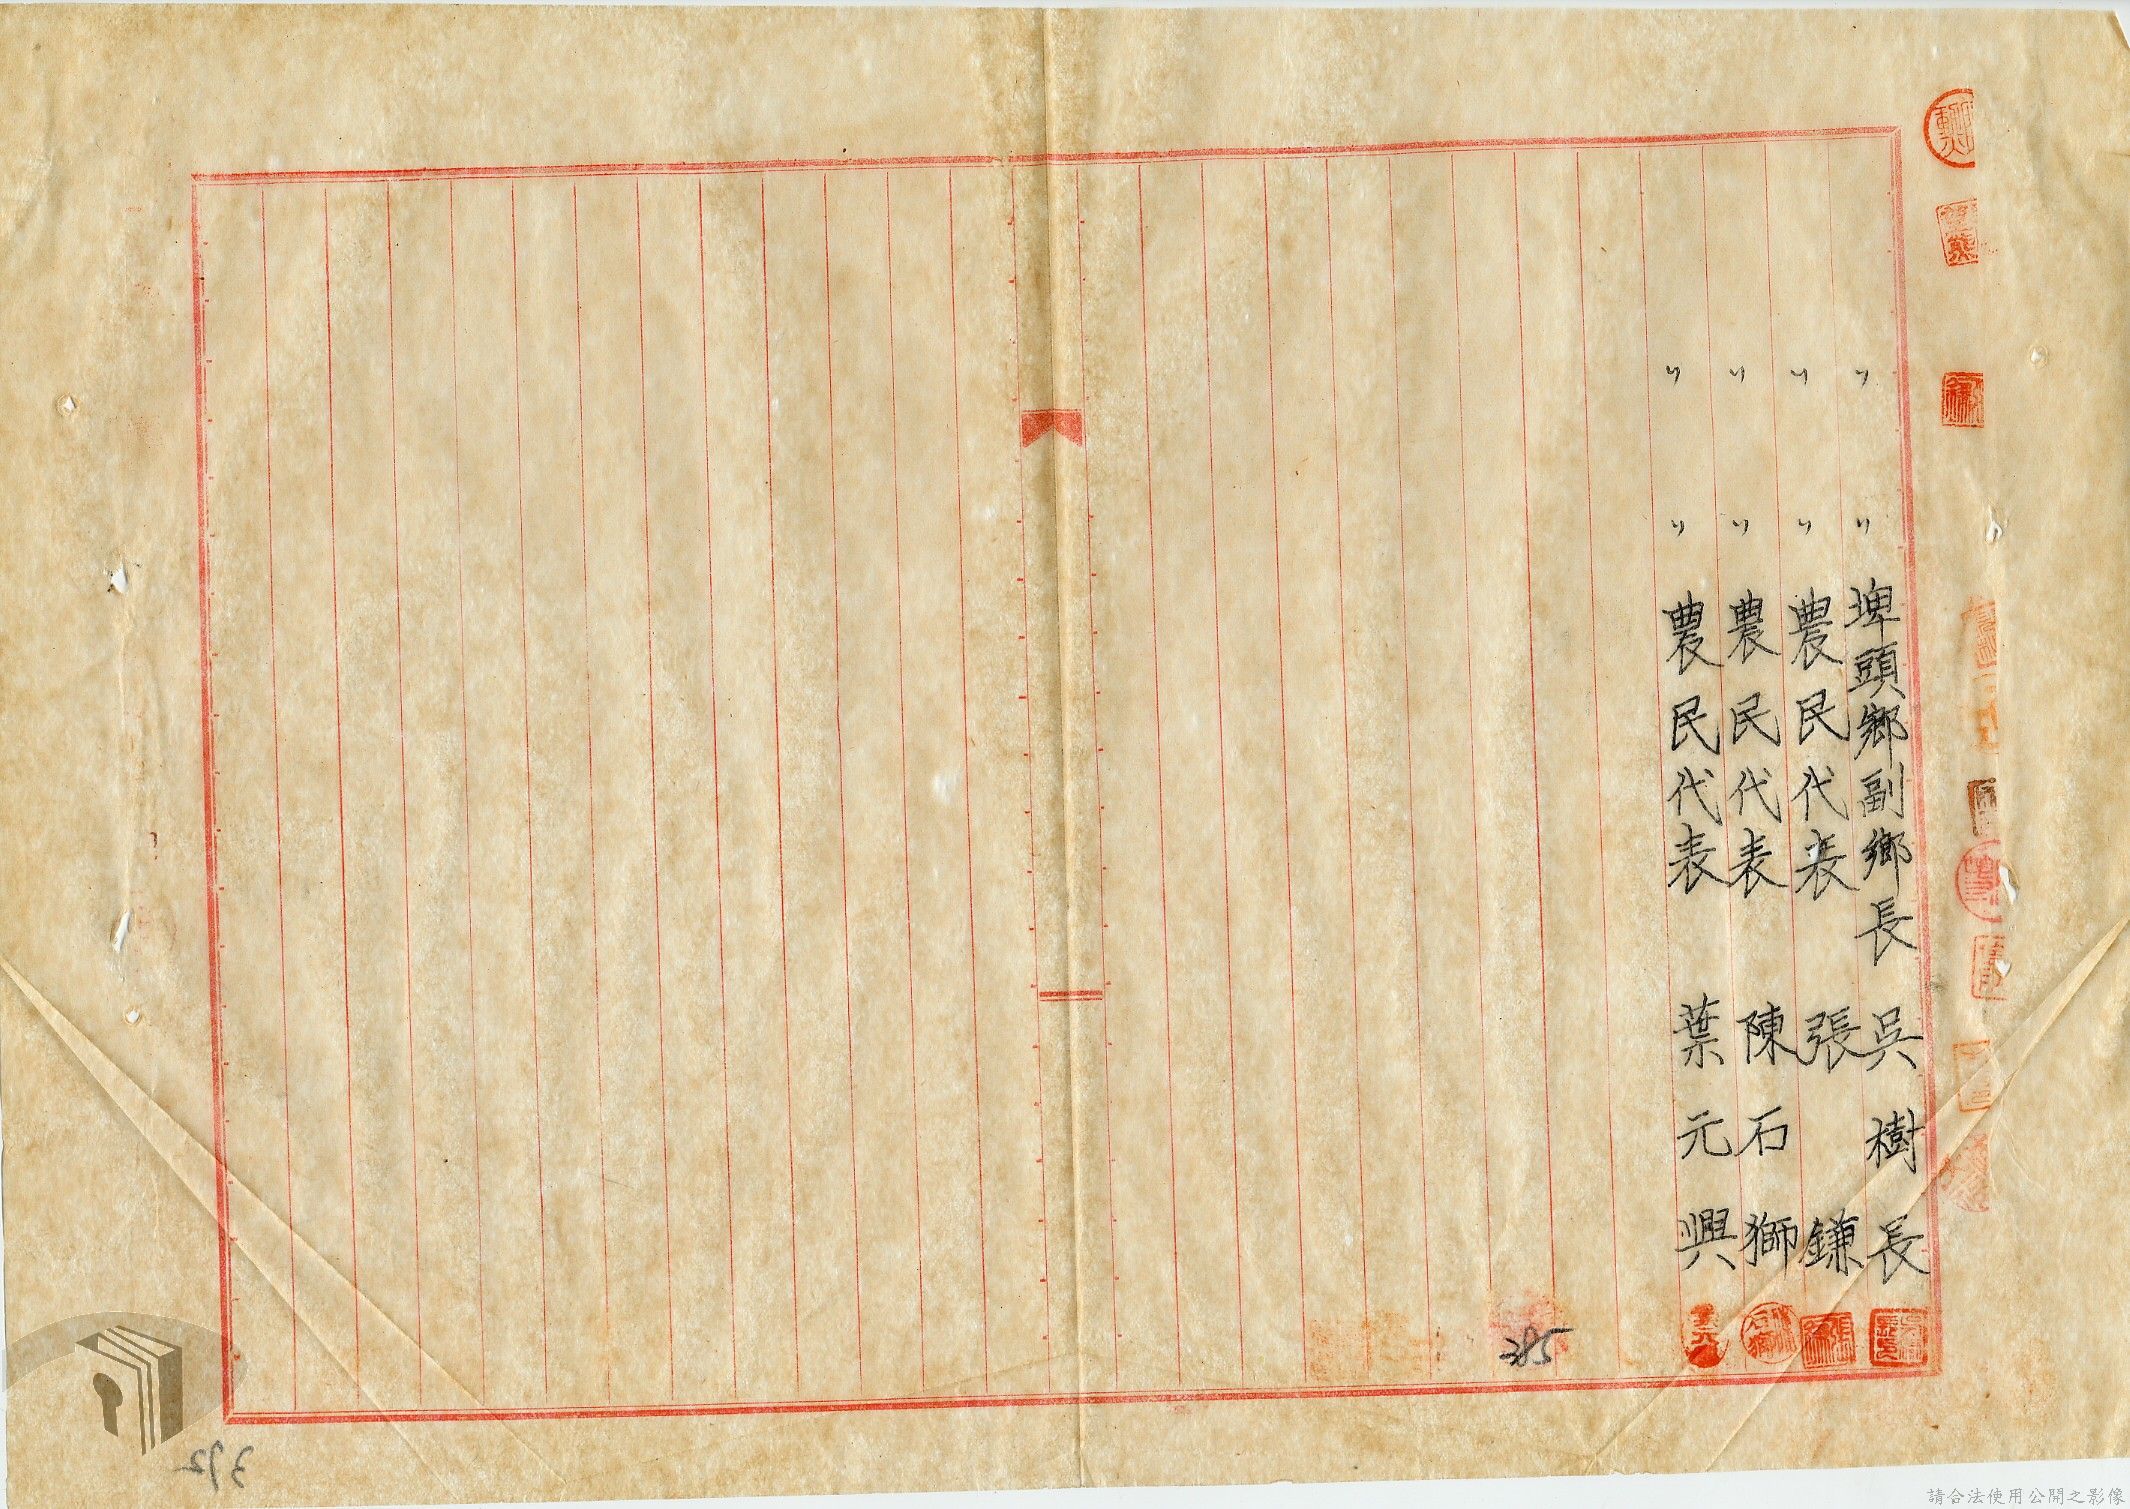 〃 〃 埤頭鄉副鄉長 吳樹長
〃 〃 農民代表 張鎌
〃 〃 農民代表 陳石獅
〃 〃 農民代表 葉元興
385
392
請合法使用公開之影像